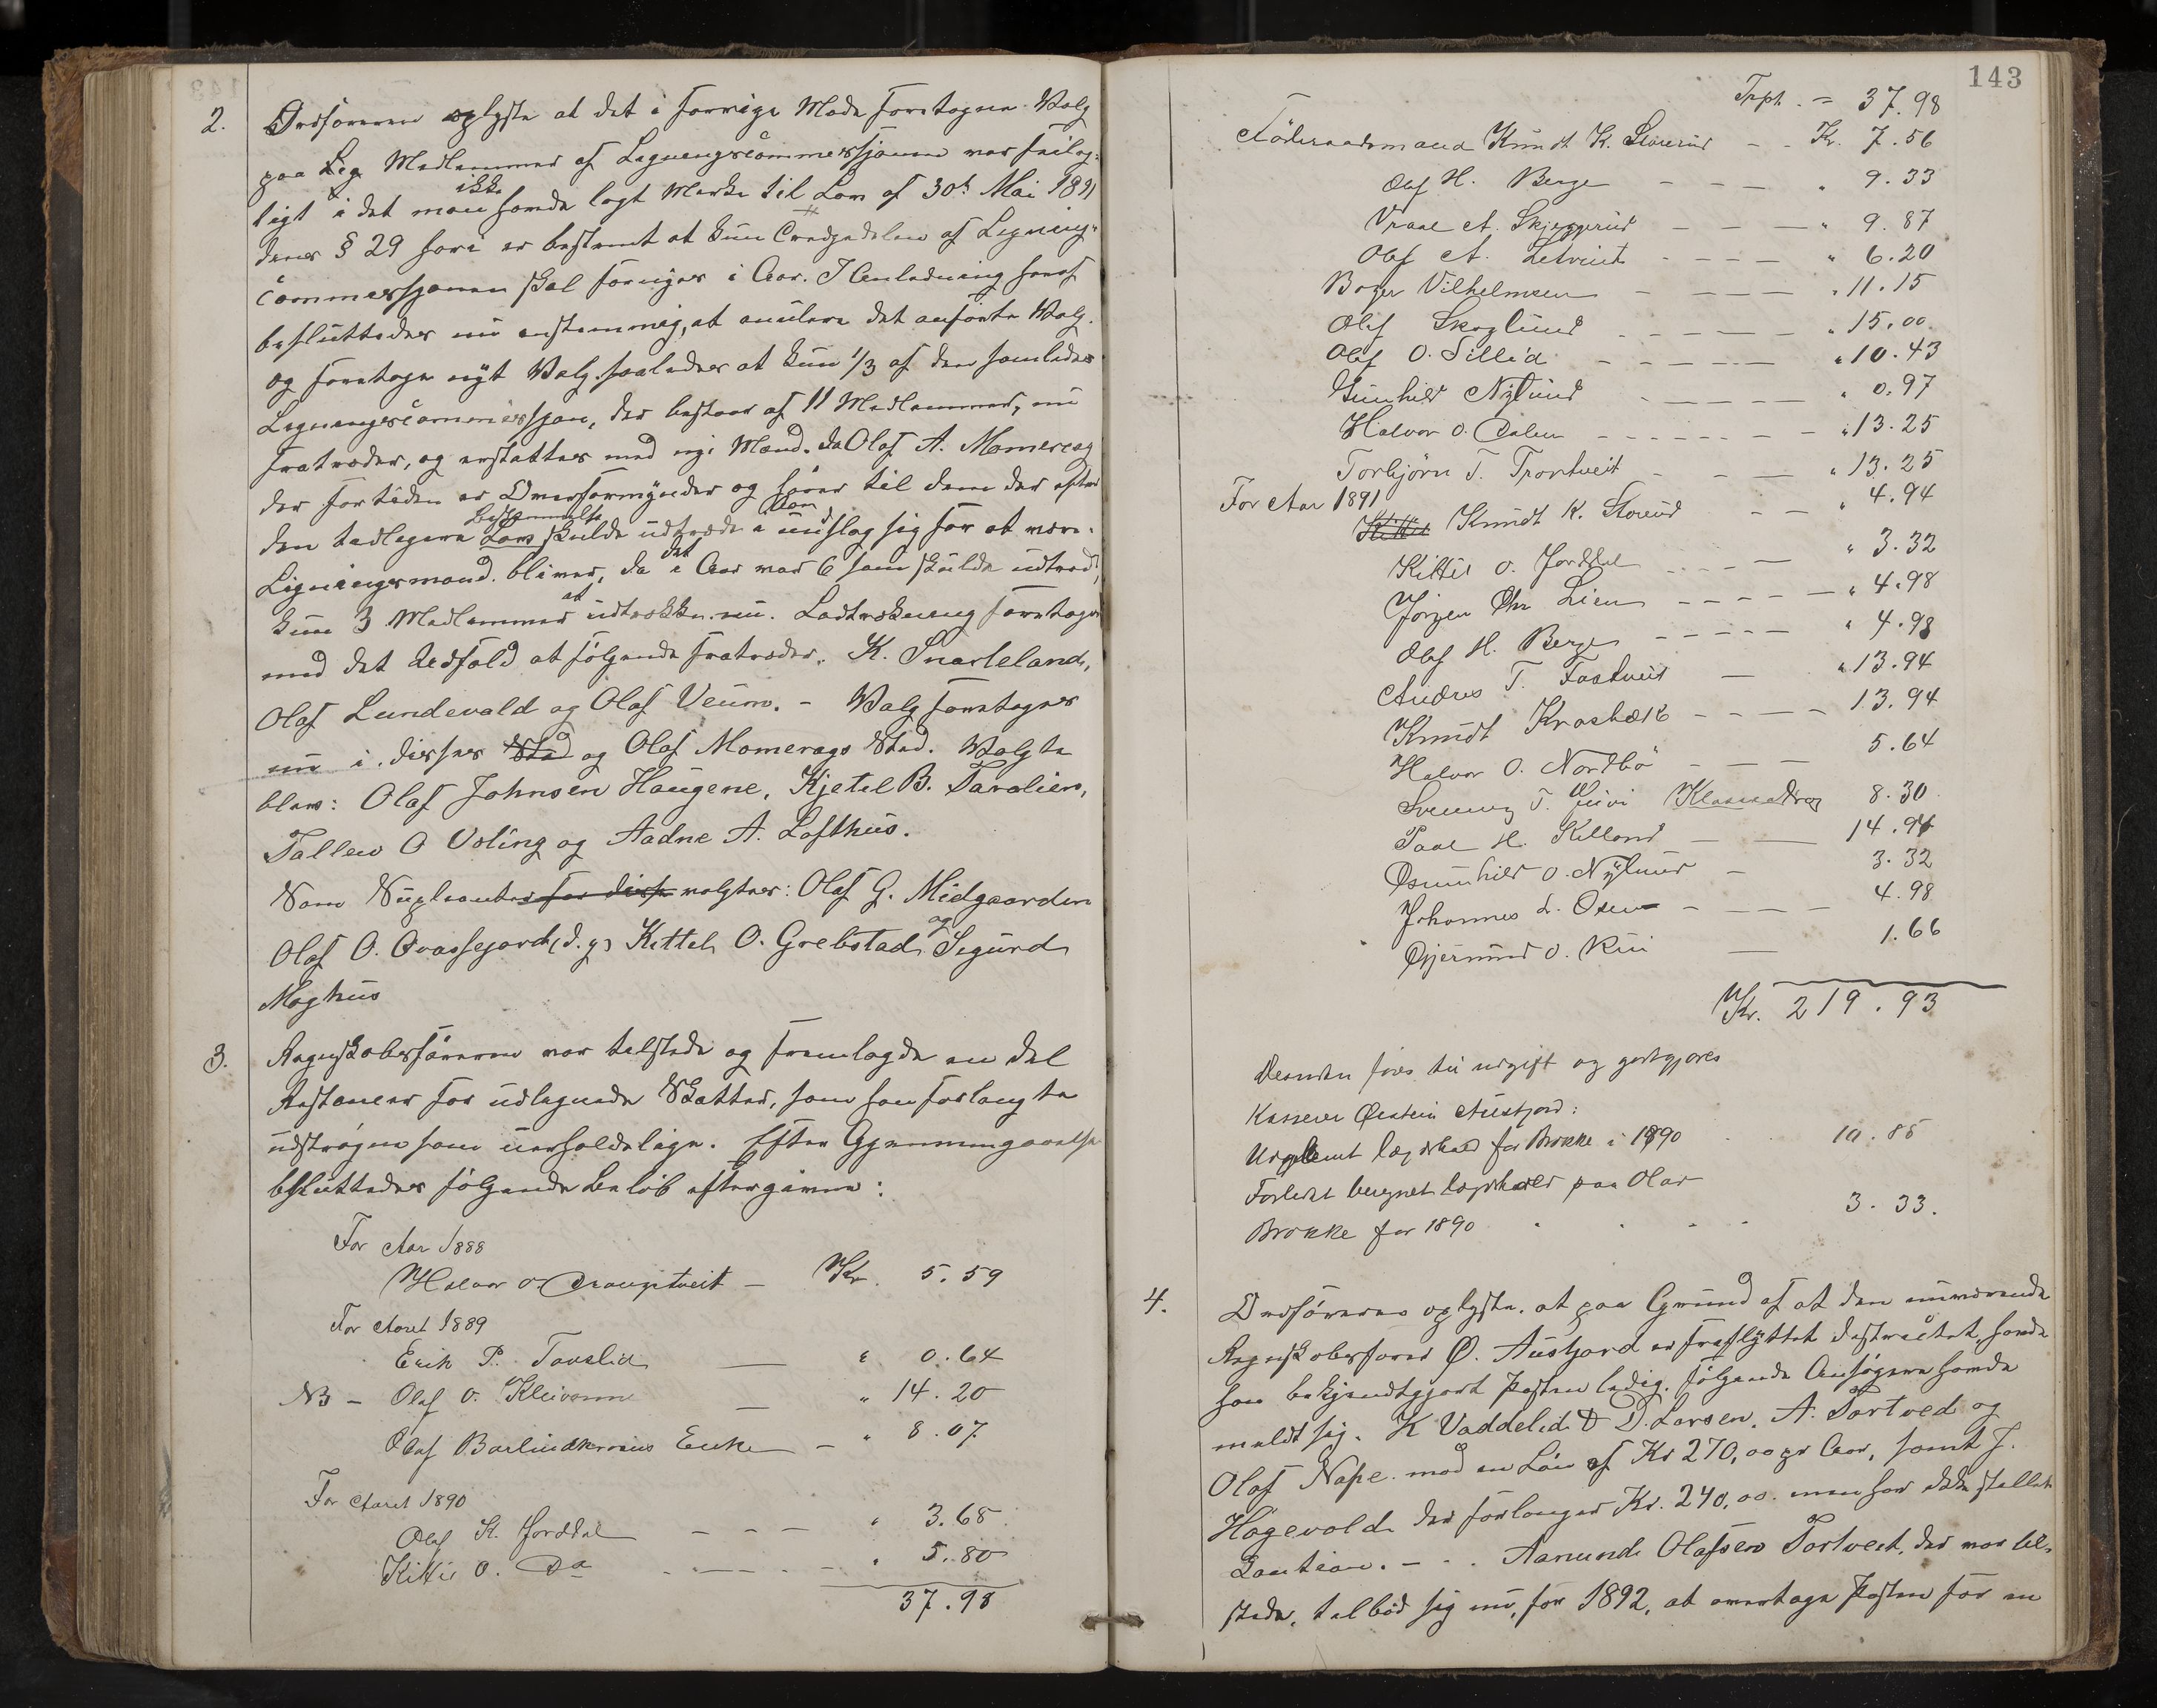 2. Ordføreren oplyste at det i forrige Møde foretagne Valg
paa Lig. Medlemmer af Ligningscommissjonen var feilag-
tigt i det man ikke havde lagt Mærke til Lov af 30te Mai 1891
denes § 29 hvori er bestemt at kun Tredjedelen af Lignings-
commissjonen skal fornyes i Aar. I Anledning heraf
besluttedes nu enstemmig, at anulere det anførte Valg.
og foretage nyt Valg saaledes at kun 1/3 af den samlede
Ligningscommissjon, der bestaar af 11 Medlemmer, nu
fratræder, og erstattes med nye Mænd. Da Olaf A. Momerag
der fortiden er Overformynder og hører til dem der efter
den tidligere Lovs bestemmelse skulde udtræde undslog sig for at være
Ligningsmand bliver, da det i Aar var 6 som skulde udtræde,
kun 3 Medlemmer at udtrække nu. Lodtrækning foretoges
med det Udfald at følgende fratræder: K. Snarteland,
Olaf Lundevald og Olaf Veum. - Valg foretoges
nu i disses Sted og Olaf Momerags Sted. Valgte
blev: Olaf Johnsen Haugene, Kjetel B. Taralien,
Tallev O Usling og Aadne A. Lofthus.
Som Supleanter for disse valgtes: Olaf G. Midgaarden
Olaf O. Ovassejord (d.y.) Kettel O. Grebstad og Sigurd
Moghus
3. Regnskabsføreren var tilstede og fremlagde en del
Restancer for udlignede Skatter, som han forlangte
udstrøgne som uerholdelige. Efter Gjennemgaaelse
besluttedes følgende Beløb eftergivne:
For Aar 1888
Halvor O Drangtveit - Kr. 5.59
For Aaret 1889
Erik P. Tovslid — " 0.64
NB - Olaf O. Kleivene — " 14.20
Olaf Barlindkroens Enke - " 8.07
For Aaret 1890
Olaf K. Jorddal - - - " 3.68
Kittil O. Do - - - " 5.80
37.98
143
Trpt. = 37.98
Föderaadsmand Knudt K. Storerud - - Kr. 7.56
Olaf H. Berge - - - " 9.33
Vraal A. Skjeggerud - - - " 9.87
Olaf A. Letveit - - - - " 6.20
Borger Vilhelmsen - - - - " 11.15
Olaf Skoglund - - - - " 15.00
Olaf O. Sillid - - - - " 10.43
Gunhild Nylund - - - - " 0.97
Halvor O. Dalen - - - - " 13.25
Torbjörn T. Trontveit - - - " 13.25
For Aar 1891
Kittil Knudt K. Storerud - - " 4.94
Kittil O. Jorddal - - - " 3.32
Jörgen Chr Lien - - - - " 4.98
Olaf H. Berge - - - - " 4.98
Andres T. Fostveit - " 13.94
Knudt Krosbæk - - - - 13.94
Halvor O. Nordbö - - - 5.64
Svenung T. Juvi Klasmedrag 8.30
Paal H. Killand — — 14.94
Gunhild O. Nylund - 3.32
Johannes L. Oxen - - - - 4.98
Gjermund O. Rui — 1.66
Kr. 219.93
Desuden føres til udgift og godtgjøres
Kasserer Østein Austjord:
Udgiveret lægdhold for Brokke i 1890 10.85
Forledet beregnet lægdhold paa Olav
Brokke for 1890 . . . . 3.33.
4. Ordføreren oplyste, at paa Grund af at den nuværende
Regnskabsfører Ø. Austjord er fraflyttet Distriktet, havde
han bekjendtgjort Posten ledig. Følgende Ansøgere havde
meldt sig. K Vaddelid & D. Larsen, A. Tortved og
Olaf Nape mod en Løn af Kr 270,00 pr Aar, samt J.
Högevold der forlanger Kr. 240,00. men har ikke stillet
Kaution. - - . Aanund Olafsen Tortveit, der var til-
stede, tilbød sig nu, for 1892, at overtage Posten for en